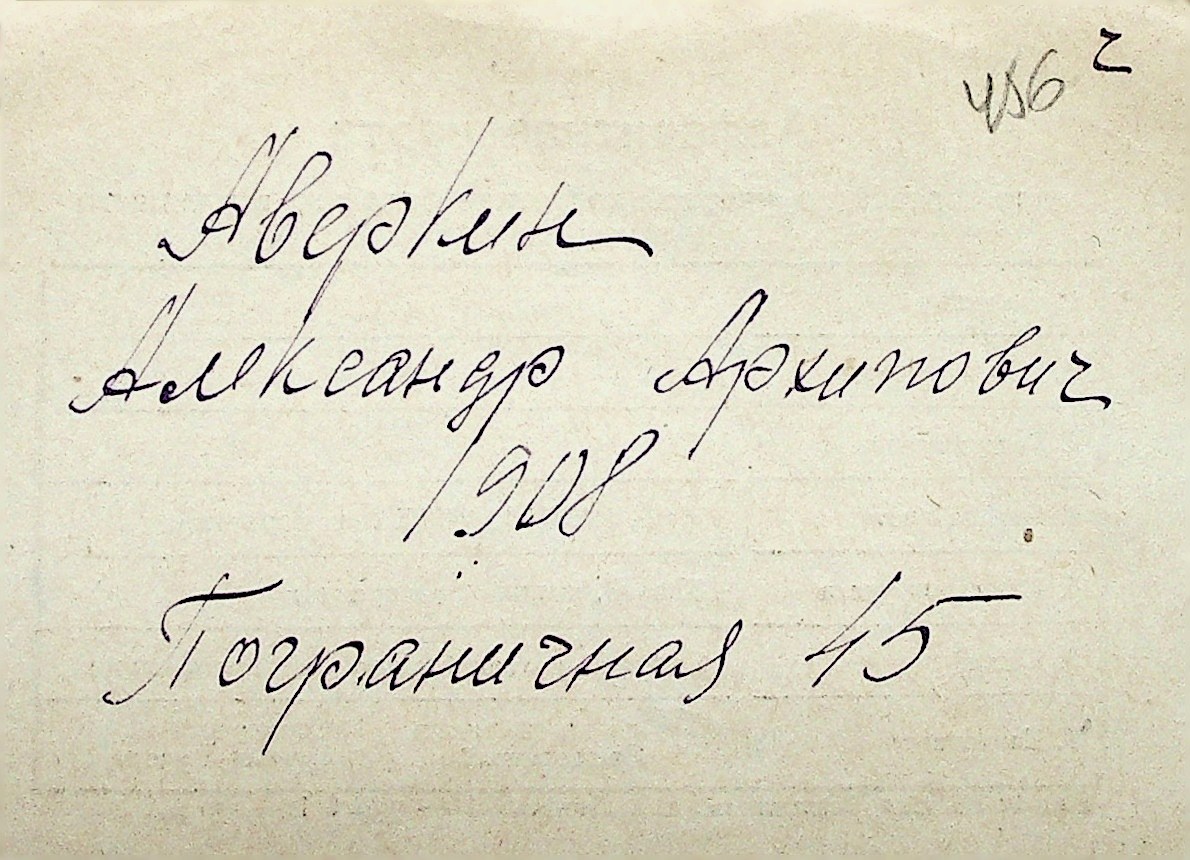 456 ч
Аверкин
Александр Архипович
1908
Пограничная 45